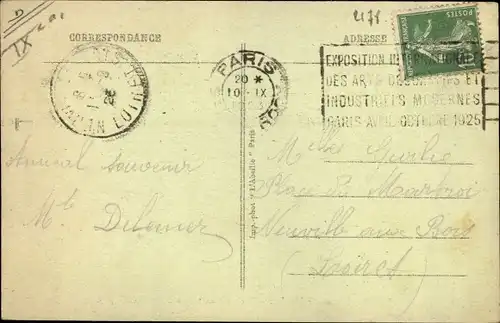 2178
IX
CORRESPONDANCE
ADRESSE
POSTES
PARIS
20 *
10 - IX
EXPOSITION INTERNATIONALE
DES ARTS DECORATIFS ET
INDUSTRIELS MODERNES
PARIS AVRIL OCTOBRE 1925
LOIRET
Amical souvenir
Mle
Imp.-phot. "L'Abeille" Paris
Melle
Place du Martroi
Neuville aux Bois
(Loiret)